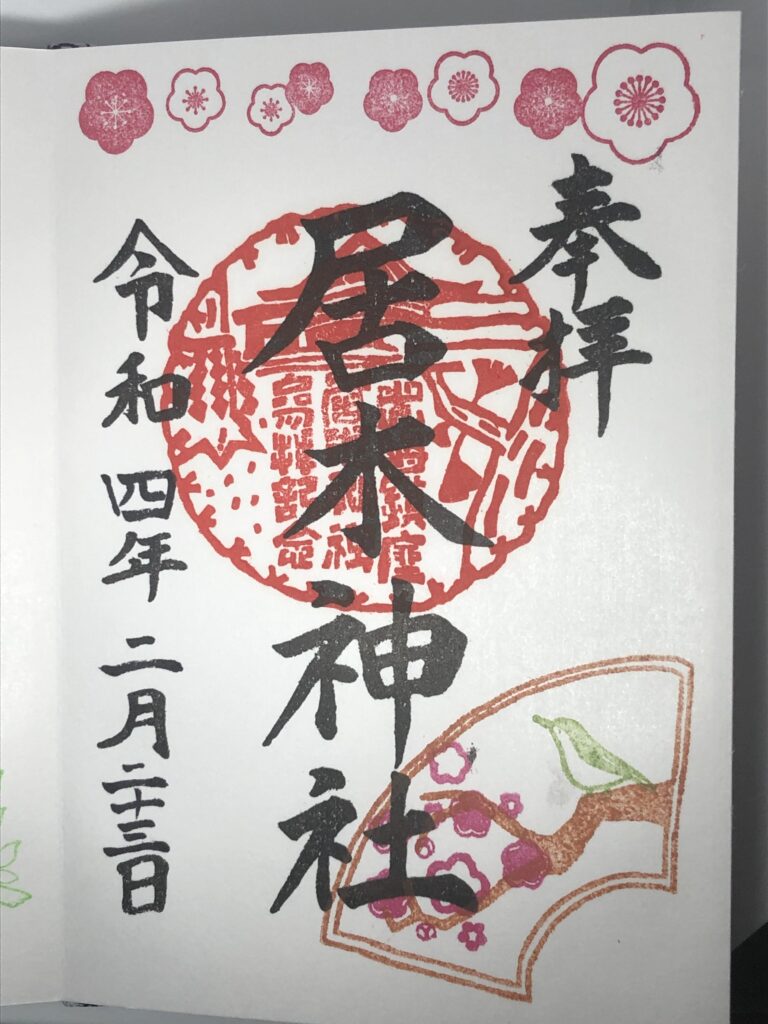 奉拝
居木神社
令和四年二月二十三日